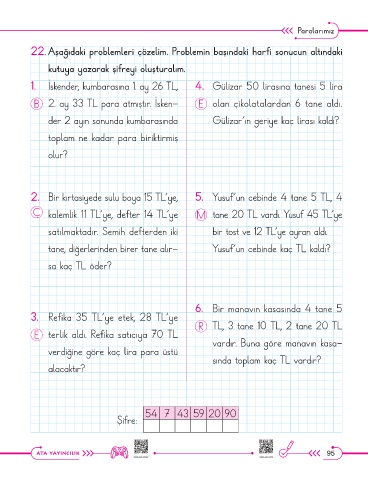 Paralarımız
22. Aşağıdaki problemleri çözelim. Problemin başındaki harfi sonucun altındaki
kutuya yazarak şifreyi oluşturalım.
1. İskender, kumbarasına 1. ay 26 TL,
B 2. ay 33 TL para atmıştır. İsken-
der 2 ayın sonunda kumbarasında
toplam ne kadar para biriktirmiş
olur?
2. Bir kırtasiyede sulu boya 15 TL'ye,
C kalemlik 11 TL'ye, defter 14 TL'ye
satılmaktadır. Semih defterden iki
tane, diğerlerinden birer tane alır-
sa kaç TL öder?
3. Refika 35 TL'ye etek, 28 TL'ye
E terlik aldı. Refika satıcıya 70 TL
verdiğine göre kaç lira para üstü
alacaktır?
4. Gülizar 50 lirasına tanesi 5 lira
E olan çikolatalardan 6 tane aldı.
Gülizar'ın geriye kaç lirası kaldı?
5. Yusuf'un cebinde 4 tane 5 TL, 4
M tane 20 TL vardı. Yusuf 45 TL'ye
bir tost ve 12 TL'ye ayran aldı.
Yusuf'un cebinde kaç TL kaldı?
6. Bir manavın kasasında 4 tane 5
R TL, 3 tane 10 TL, 2 tane 20 TL
vardır. Buna göre manavın kasa-
sında toplam kaç TL vardır?
Şifre: 54 7 43 59 20 90
ATA YAYINCILIK
95